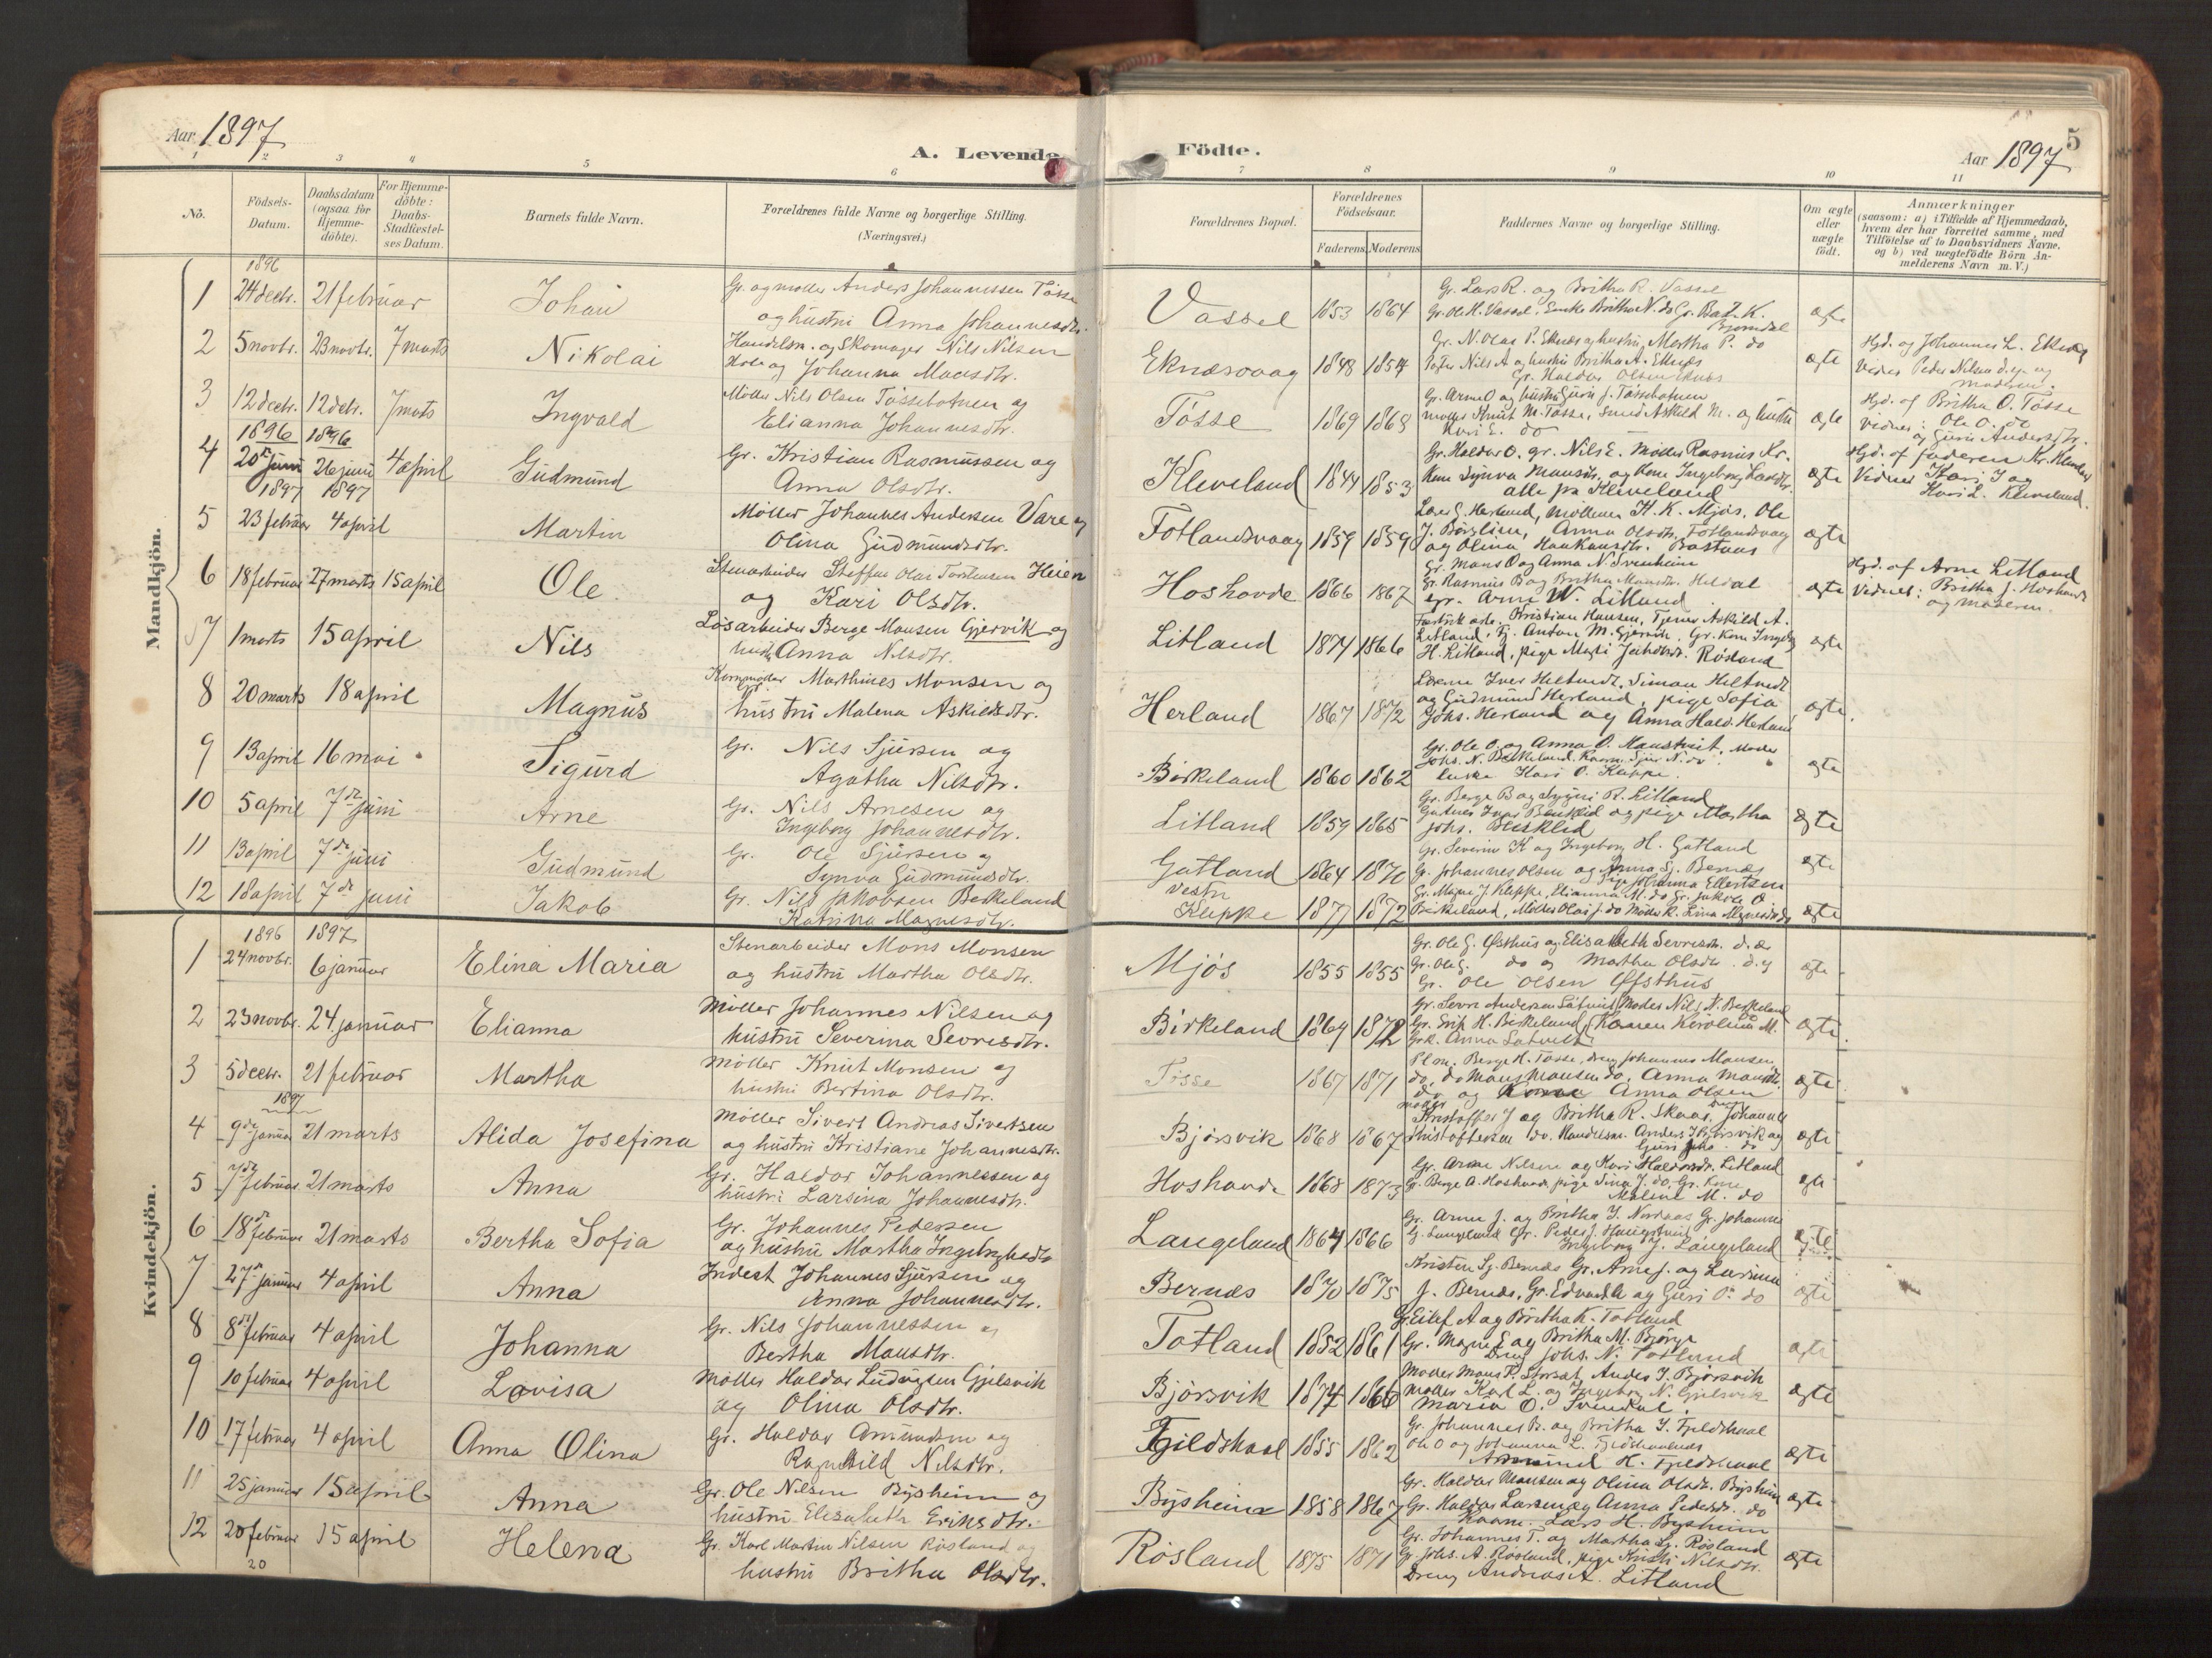 Aar 1897
A. Levende
Födte.
Aar 1897
5
1 2 3 4 5 6 7 8 9 10 11
No.
Födsels-
Datum.
Daabsdatum
(ogsaa for
Hjemme-
döbte).
For Hjemme-
döbte:
Daabs-
Stadfæstel-
ses Datum.
Barnets fulde Navn.
Forældrenes fulde Navne og borgerlige Stilling.
(Næringsvei.)
Forældrenes Bopæl.
Forældrenes
Födselsaar.
Faderens
Moderens
Faddernes Navne og borgerlige Stilling.
Om ægte
eller
uægte
födt.
Anmærkninger
(saasom: a) i Tilfælde af Hjemmedaab,
hvem der har forrettet samme, med
Tilföielse af to Daabsvidners Navne,
og b) ved uægtefödte Börn An-
melderens Navn m. V.)
Mandkjön.
1896
1 24 decbr. 21 februar Johan
Gr. og møller Anders Johannessen Tösse
og hustru Anna Johannesdtr.
Vassel 1853 1864
Gr. Lars R. og Britha R. Vassel
ægte
2 5 novbr. 23 novbr. 7 marts Nikolai
Handelsm. og Skomager Nils Nilsen
og Johanna Monsdtr.
Eknæsvaag 1848 1854
ægte
Hjd. og Johannes L. Eknæs
Vidner Peder Nilsen d.y. og
moderen.
3 12 decbr. 12 debr. 7 marts Ingvald
Møller Nils Olsen Tössebotnen og
Elianna Johannesdtr.
Tösse 1869 1868
Gr. Arne O og hustru Guri J. Tössebotnen
møller Knut M. Tösse, Smed Askild M. og hustru
Kari E. do
ægte
Hjd. af Britha O. Tösse
Vidner: Ole O. do
og Guri Andersdtr.
1896 1896
4 20 juni 26 juni 4 april Gudmund
Gr. Kristian Rasmussen og
Anna Olsdtr.
Kleveland 1844 1853
Gr. Haldor O. gr. Nils E. Møller Rasmus Kr.
Kone Synva Monsdtr. og Kone Ingeborg Larsdtr.
alle paa Kleveland
ægte
Hjd. af faderen Kr. Kleveland
Vidner Kari J og
Kari L. Kleveland.
1897 1897
5 23 februar 4 april Martin
Møller Johannes Andersen Vare og
Olina Gudmundsdtr.
Totlandsvaag 1859 1859
Lars G. Herland, Møllerne H. K. Mjös. Ole
J. Börslien, Anna Olsdtr. Totlandsvaag
og Olina Haakonsdtr. Bastaas
ægte
6 18 februar 27 marts 15 april Ole
Stenarbeider Steffen Olai Torstensen Heien
og Kari Olsdtr.
Hoshovde 1866 1867
Gr. Mons O og Anna N. Svenheim
Gr. Rasmus B og Britha Monsdtr. Heldal
gr. Arne W. Litland
ægte
Hjd. af Arne Litland
Vidner: Britha J. Hoshovde
og moderen.
7 1 marts 15 april Nils
Lösarbeider Berge Monsen Gjervik og
hust. Anna Nilsdtr.
Litland 1874 1866
Fabrik arb. Kristian Hansen, Tjener Askild A.
Litland, Tj. Anton M. Gjervik, Gr. Kone Ingeborg
H. Litland, pige Marti Jakobsdr. Rösland
ægte
8 20 marts 18 april Magnus
Marthines Monsen og
hustru Malena Askildsdtr.
Herland 1867 1872
Iver Heltvedt, Simon Heltvedt
og Gudmund Herland, pige Sofia
Johs. Herland og Anna Hald. Herland
ægte.
9 13 april 16 mai Sigurd
Gr. Nils Sjursen og
Agatha Nilsdtr.
Birkeland 1860 1862
Gr. Ole O. og Anna O. Monstveit, Møller
Johs. N. Birkeland. Kaarm. Sjur N. do
Enke Kari O. Kleppe.
ægte
10 5 april 7de juni Arne
Gr. Nils Arnesen og
Ingeborg Johannesdtr.
Litland 1859 1865
Gr. Berge B og Sygni R. Litland
og pige Martha
Johs. Bleiklid
ægte
11 13 april 7de juni Gudmund
Gr. Ole Sjursen og
Synva Gudmundsdtr.
Gatland 1864 1870
Gr. Severin K og Ingeborg H. Gatland
Gr. Johannes Olsen og Anna Sj. Bernæs
pige Johanna Ellertsen
ægte
12 18 april 7de juni Jakob
Gr. Nils Jakobsen Berkeland
Katrina Magnesdtr.
Vestn
Kleppe 1877 1872
Gr. Magne J. Kleppe, Elianna M. do Gr. Jakob O
Birkeland, Møller Olai J. do Møller K. Lina Magnesdr. do
ægte
Kvindekjön.
1896 1897
1 24 novbr. 6 januar Elina Maria
Stenarbeider Mons Monsen
og hustru Martha Olsdtr.
Mjös 1855 1855
Gr. Ole G. Øfsthus og Elisabeth Sevrsdtr. d. æ
Gr. Ole G. do og Martha Olsdtr. d. y
Gr. Ole Olsen Øfsthus
ægte
2 23 novbr. 24. januar Elianna
Møller Johannes Nilsen og
hustru Severina Sevrsdtr.
Birkeland 1864 1872
Gr. Sevrn Andersen Låtveit, Møller Nils N. Berkeland
Gr. Erik H. Berkeland, Konen Karolina M. do
Grk. Anna Låtveit
ægte
3 5 decbr. 21 februar Martha
Møller Knut Monsen og
hustru Bertina Olsdtr.
Tösse 1867 1871
Berge H. Tösse, dreng Johannes Monsen
do, do Mons Monsen do, Anna Monsdtr.
do og Anna Olsen
ægte
1897
4 9de januar 21 marts Alida Josefina
Møller Sivert Andreas Sivertsen
og hustru Kristiane Johannesdtr.
Bjørsvik 1868 1867
møller
Kristoffer J og Britha R. Skaar, dreng Johannes
Kristoffersen do. Handelsm. Anders J. Bjørsvik og
Guri Johs. do
ægte
5 7de februar 21 marts Anna
Gr. Haldor Johannessen og
hustru Larsina Johannesdtr.
Hoshovde 1868 1873
Gr. Arne Nilsen og Kari Haldorsdr. Litland
Gr. Berge A. Hoshovde, pige Sina J. do. Gr. Kone
Malene M. do
ægte
6 18de februar 21 marts Bertha Sofia
Gr. Johannes Pedersen
og hustru Martha Ingebrigtsdtr
Langeland 1864 1866
Gr. Arne J. og Britha J. Nordaas Gr. Johannes
G. Langeland Gr. Peder J. Haugstveit
Ingeborg J. Langeland
ægte
7 27de januar 4 april Anna
Inderst Johannes Sjursen og
Anna Johannesdtr.
Bernæs 1870 1875
Kristen Sj. Bernæs Gr. Arne J. og Larsina
J. Bernæs, Gr. Edvard A og Guri P. do
ægte
8 8de februar 4 april Johanna
Gr. Nils Johannessen og
Bertha Monsdtr.
Totland 1852 1861
Gr. Eilef A og Britha K. Totland
Gr. Magne E. og Britha M. Bjørge
Dreng Johs. N. Totland
ægte
9 10 februar 4 april Lovisa
Møller Haldor Ludvigsen Gjelsvik
og Olina Olsdtr.
Björsvik 1874 1866
Møller Mons K. Storsat, Anders J. Björsvik
Møller Karl L. og Ingeborg N. Gjelsvik
Maria O. Svendal.
ægte
10 17 februar 4 april Anna Olina
Gr. Haldor Amundsen og
Ragnhild Nilsdtr.
Fjeldskaal 1855 1862
Gr. Johannes B. og Britha J. Fjeldskaal
Ole O og Johanna L. Fjeldskaalnæs
Amund H. Fjeldskaal
ægte
11 25 januar 15 april Anna
Gr. Ole Nilsen Bysheim og
hustru Elisabeth Eriksdtr.
Bysheim 1858 1867
Gr. Haldor Monsen og Olina Olsdr. Bysheim
Gr. Haldor Larsen og Anna Pedersdr. do
Kaarm. Lars H. Bysheim
ægte
12 20 februar 15 april Helena
20
Gr. Karl Martin Nilsen Rösland og
hustru Britha Olsdtr.
Rösland 1875 1871
Gr. Johannes T. og Martha Sj. Rösland
Gr. Johs. A. Rösland, pige Kristi Nilsdtr.
Dreng Andreas A. Litland
ægte